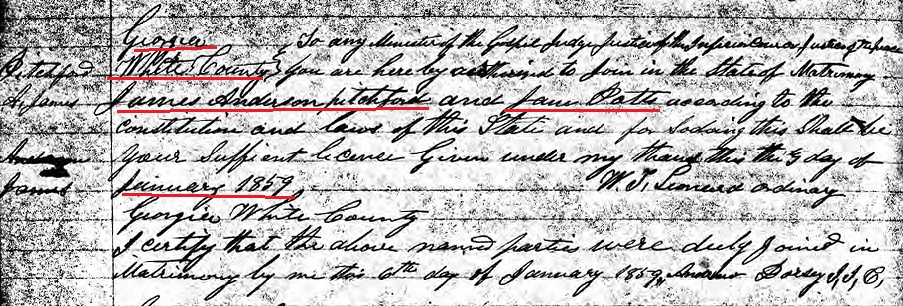 Georgia
To any Minister of the Gospel Judge Justice of the Inferior Court or Justice of the Peace
Pitchford
White County
You are here by authorised to Join in the State of Matrimony
A. James
James Anderson pitchford and Jane Potts according to the
constitution and laws of this State and for so doing this Shall be
your Suffient licence Given under my hand this the 3 day of
James
January 1859
W. T. Leonard ordinary
Georgia White County
I certify that the above named parties were duly Joined in
Matrimony by me this 6th day of January 1859 Dorsey J, I, C,